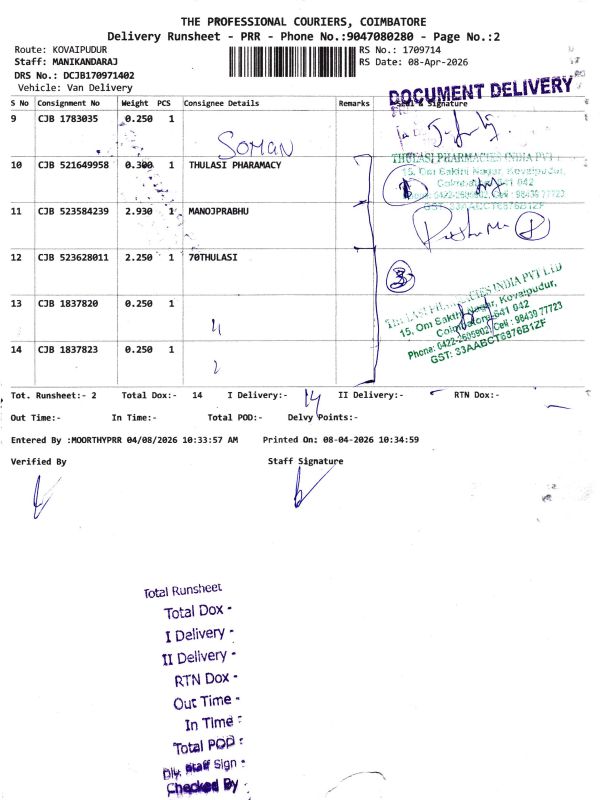 THE PROFESSIONAL COURIERS, COIMBATORE
Delivery Runsheet - PRR - Phone No.:9047080280 - Page No.:2
Route: KOVAIPUDUR RS No.: 1709714
Staff: MANIKANDARAJ RS Date: 08-Apr-2026
DRS No.: DCJB170971402
Vehicle: Van Delivery
DOCUMENT DELIVERY
S No Consignment No Weight PCS Consignee Details Remarks & Signature
9 CJB 1783035 0.250 1
SOMAN
10 CJB 521649958 0.300 1 THULASI PHARAMACY
THULASI PHARMACIES INDIA PVT LTD
15, Om Sakthi Nagar, Kovaipudur,
Coimbatore-641 042
Phone: 0422-2605902, Cell : 98439 77723
GST: 33AABCT6876B12F
1
11 CJB 523584239 2.930 1 MANOJPRABHU
2
12 CJB 523628011 2.250 1 70THULASI
3
THULASI PHARMACIES INDIA PVT LTD
15, Om Sakthi Nagar, Kovaipudur,
Coimbatore-641 042
Phone: 0422-2605902, Cell : 98439 77723
GST: 33AABCT6876B12F
13 CJB 1837820 0.250 1
14 CJB 1837823 0.250 1
Tot. Runsheet:- 2 Total Dox:- 14 I Delivery:- 14 II Delivery:- RTN Dox:-
Out Time:- In Time:- Total POD:- Delvy Points:-
Entered By :MOORTHYPRR 04/08/2026 10:33:57 AM Printed On: 08-04-2026 10:34:59
Verified By Staff Signature
Total Runsheet
Total Dox -
I Delivery -
II Delivery -
RTN Dox -
Out Time -
In Time :
Total POD :
Dly. Staff Sign :
Checked By